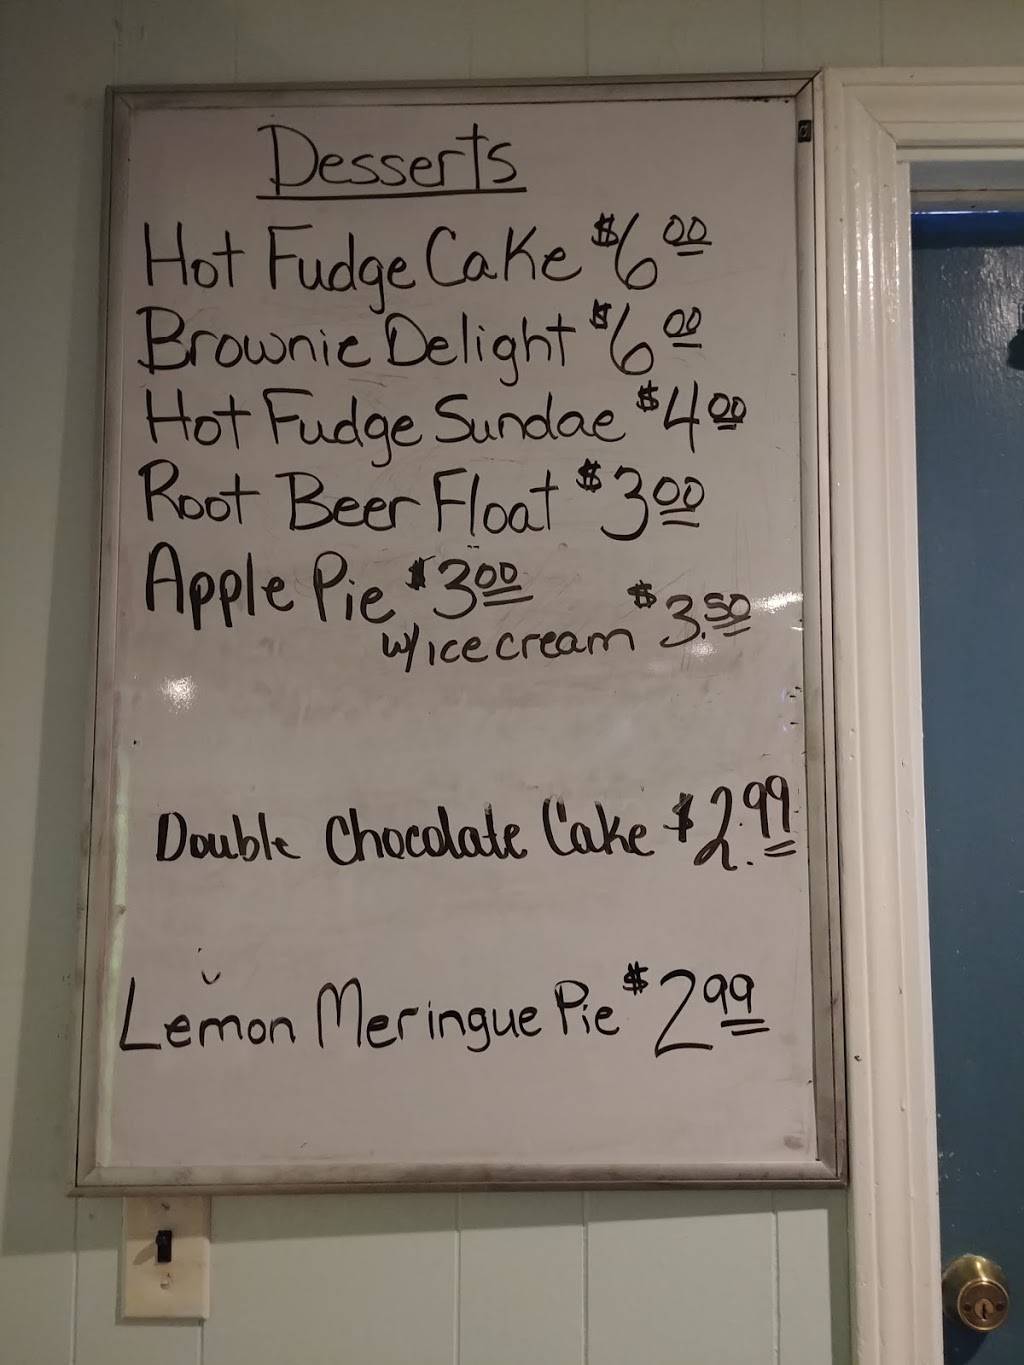 Desserts
Hot Fudge Cake $6 00
Brownie Delight $6 00
Hot Fudge Sundae $4 00
Root Beer Float $3 00
Apple Pie $3 00
w/ice cream $3.50
Double Chocolate Cake $2.99
Lemon Meringue Pie $2 99